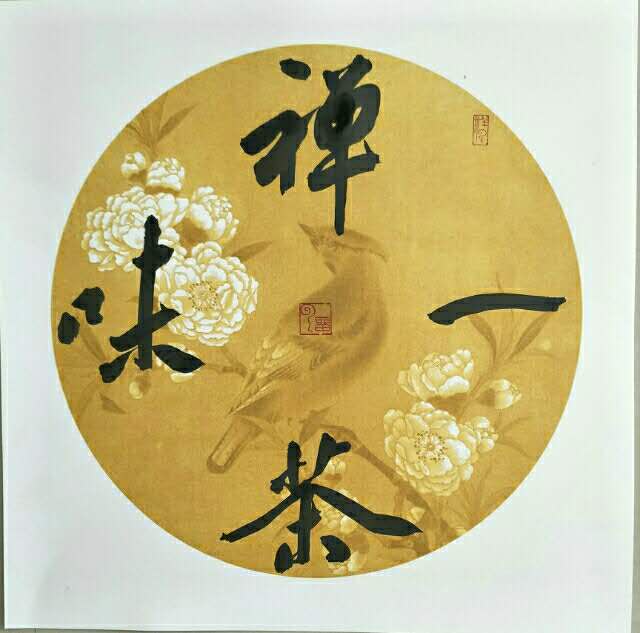 禅
茶
一
味